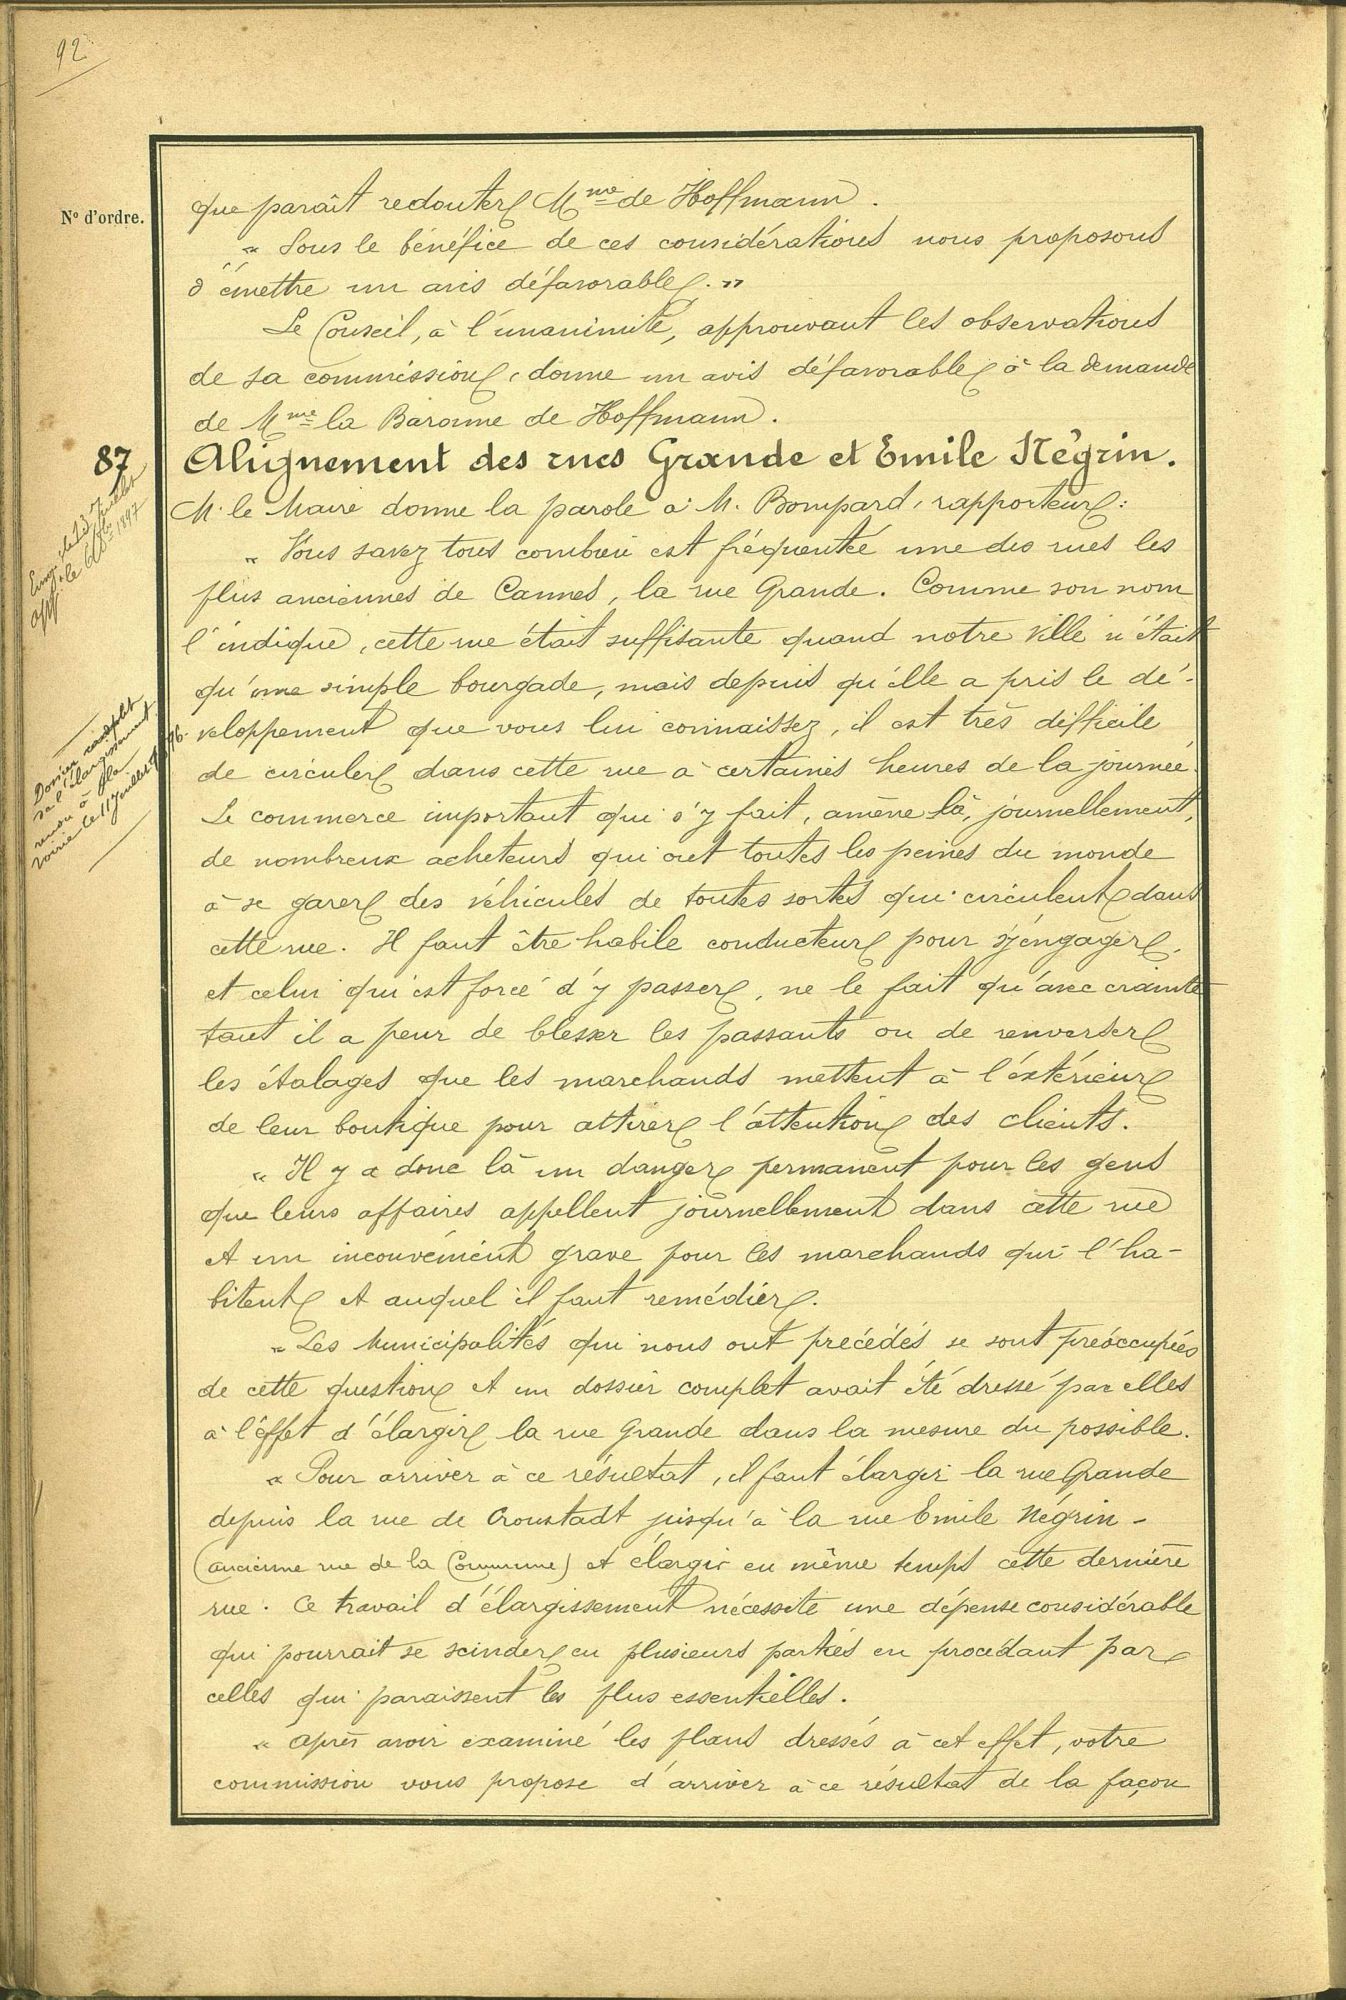 92
N° d'ordre.
que paraît redouter Mme de Hoffmann.
" Sous le bénéfice de ces considérations nous proposons
d'émettre un avis défavorable. "
Le Conseil, à l'unanimité, approuvant les observations
de sa commission, donne un avis défavorable à la demande
de Mme la Baronne de Hoffmann.
87
Alignement des rues Grande et Emile Négrin.
Envoi le 23 Juillet
app. le 6 8bre 1897
M. le Maire donne la parole à M. Bompard, rapporteur :
" Vous savez tous combien est fréquentée une des rues les
plus anciennes de Cannes, la rue Grande. Comme son nom
l'indique, cette rue était suffisante quand notre Ville n'était
qu'une simple bourgade, mais depuis qu'elle a pris le dé-
veloppement que vous lui connaissez, il est très difficile
de circuler dans cette rue à certaines heures de la journée.
Dossier complet
de l'élargissement
remis à la
voirie le 11 Juillet
Le commerce important qui s'y fait, amène là, journellement,
de nombreux acheteurs qui ont toutes les peines du monde
à se garer des véhicules de toutes sortes qui circulent dans
cette rue. Il faut être habile conducteur pour s'y engager,
et celui qui est forcé d'y passer, ne le fait qu'avec crainte
tant il a peur de blesser les passants ou de renverser
les étalages que les marchands mettent à l'extérieur
de leur boutique pour attirer l'attention des clients.
" Il y a donc là un danger permanent pour les gens
que leurs affaires appellent journellement dans cette rue
et un inconvénient grave pour les marchands qui l'ha-
bitent et auquel il faut remédier.
" Les Municipalités qui nous ont précédés se sont préoccupées
de cette question et un dossier complet avait été dressé par elles
à l'effet d'élargir la rue Grande dans la mesure du possible.
" Pour arriver à ce résultat, il faut élargir la rue Grande
depuis la rue de Cronstadt jusqu'à la rue Emile Négrin -
(ancienne rue de la Commune) et élargir en même temps cette dernière
rue. Ce travail d'élargissement nécessite une dépense considérable
qui pourrait se scinder en plusieurs parties en procédant par
celles qui paraissent les plus essentielles.
" Après avoir examiné les plans dressés à cet effet, votre
commission vous propose d'arriver à ce résultat de la façon